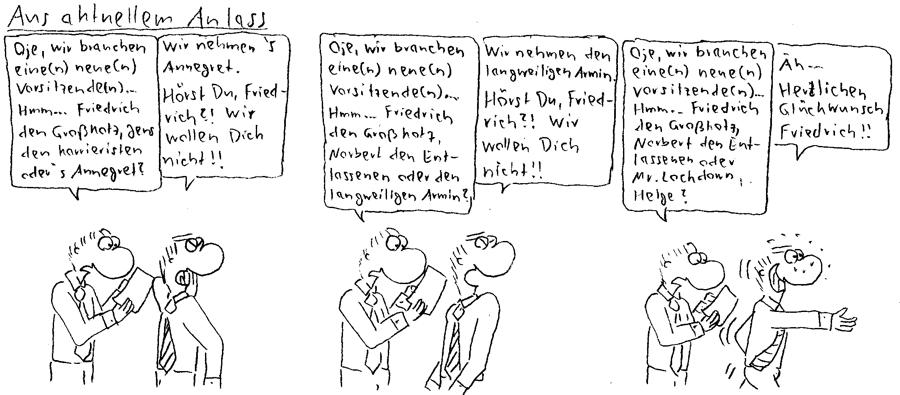 Aus aktuellem Anlass
Oje, wir brauchen
eine(n) neue(n)
Vorsitzende(n)...
Hmm... Friedrich
den Großkotz, Jens
den Karrieristen
oder's Annegret?
Wir nehmen's
Annegret.
Hörst Du, Fried-
rich?! Wir
wollen Dich
nicht!!
Oje, wir brauchen
eine(n) neue(n)
Vorsitzende(n)...
Hmm... Friedrich
den Großkotz,
Norbert den Ent-
lassenen oder den
langweiligen Armin?
Wir nehmen den
langweiligen Armin.
Hörst Du, Fried-
rich?! Wir
wollen Dich
nicht!!
Oje, wir brauchen
eine(n) neue(n)
Vorsitzende(n)...
Hmm... Friedrich
den Großkotz,
Norbert den Ent-
lassenen oder
Mr. Lockdown,
Helge?
Äh...
Herzlichen
Glückwunsch,
Friedrich!!